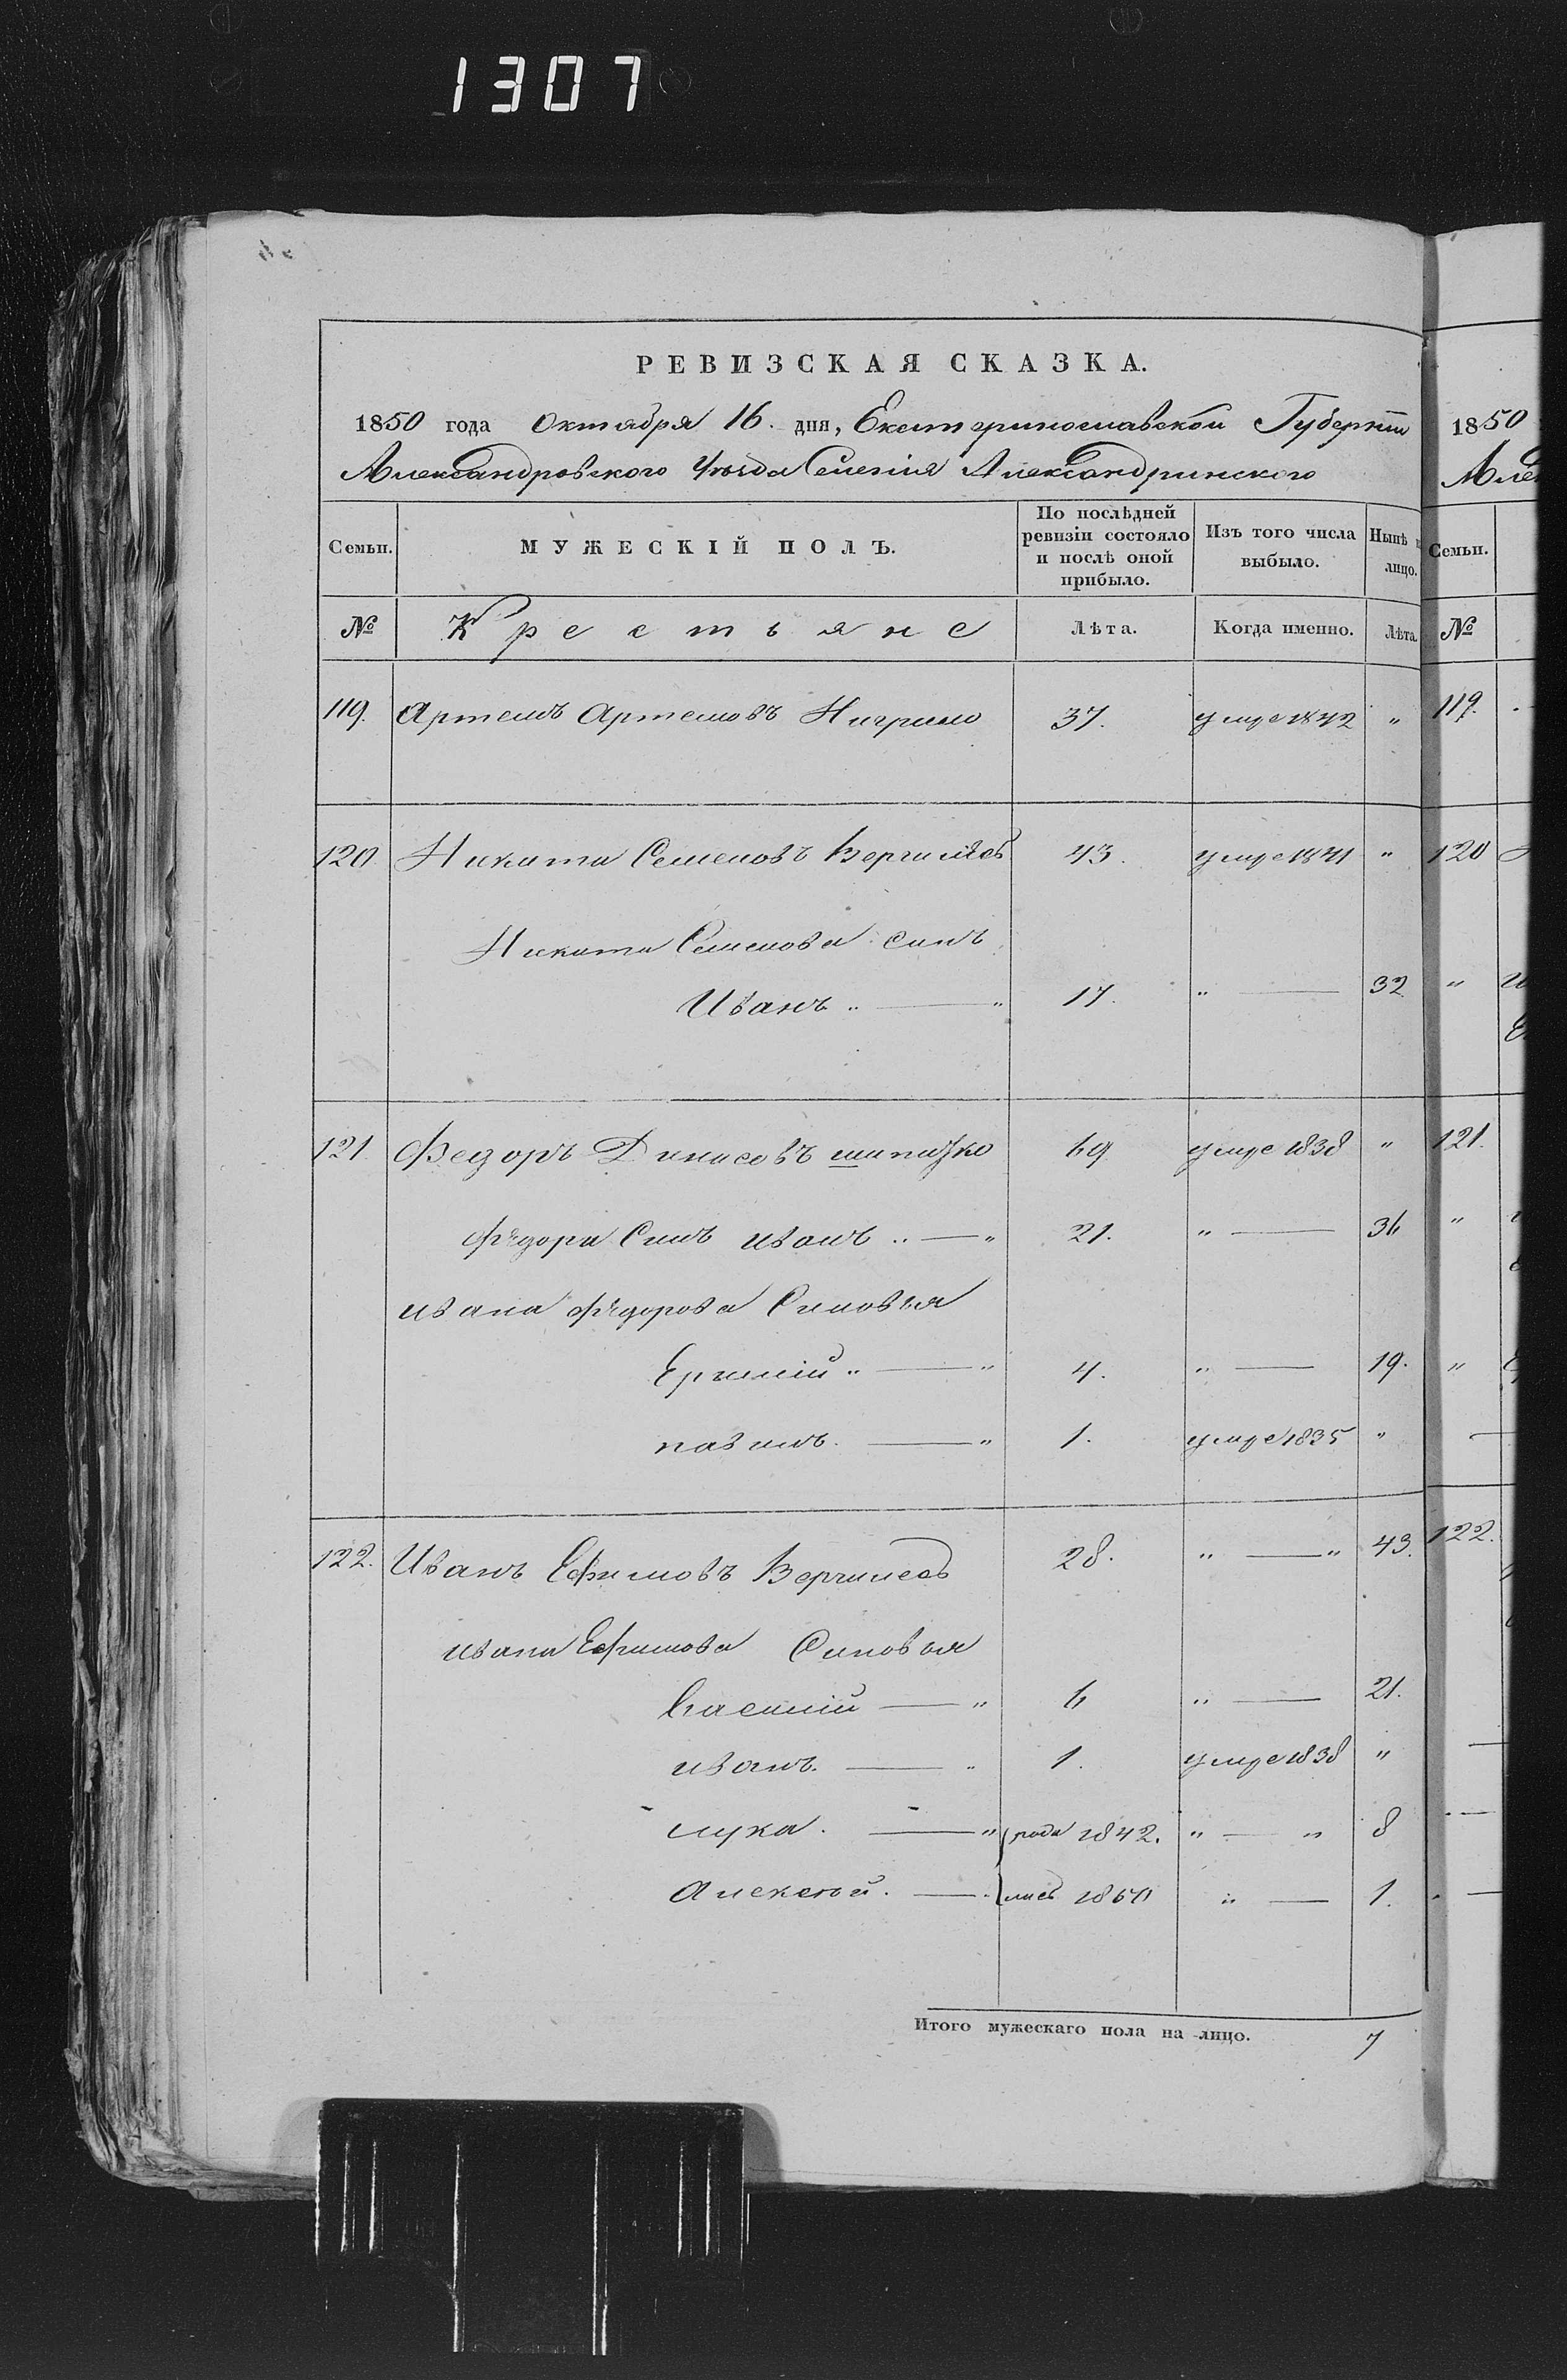 1307
РЕВИЗСКАЯ СКАЗКА.
1850 года Октября 16. дня, Екатеринославской Губерніи
Александровского Уѣзда Селенія Александринского
Семьи. МУЖЕСКІЙ ПОЛЪ. По послѣдней ревизіи состояло и послѣ оной прибыло. Изъ того числа выбыло. Нынѣ на лицо.
№ Крестьяне Лѣта. Когда именно. Лѣта.
119. Артемъ Артемовъ 37. умре 1842 "
120. Никита Семеновъ 43. умре 1841 "
Никита Семенова Синъ
Иванъ " — " 17. " — 32
121. Федоръ Динисовъ 69 умре 1838 "
Фѣдора Синъ Иванъ " — " 21. " — 36
Ивана Фѣдорова Синовья
" — " 4. " — 19.
— " 1. умре 1835 "
122. Иванъ Ефимовъ 28. " — " 43.
Ивана Ефимова Синовья
Василій — " 6 " — 21.
Иванъ. — " 1. умре 1838 "
Лука. — " роди 1842. " — " 8
Алексѣй. — лись " — 1.
Итого мужескаго пола на лицо. 7
1850
Але
Семьи.
№
119.
120
"
121.
"
"
122.